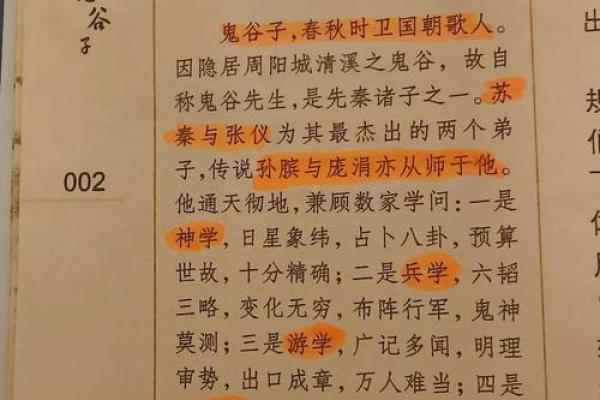 鬼谷子
002
鬼谷子，春秋时卫国朝歌人。
因隐居周阳城清溪之鬼谷，故自
称鬼谷先生，是先秦诸子之一。苏
秦与张仪为其最杰出的两个弟
子，传说孙膑与庞涓亦从师于他。
他通天彻地，兼顾数家学问：一是
神学，日星象纬，占卜八卦，预算
世故，十分精确；二是兵学，六韬
三略，变化无穷，布阵行军，鬼神
莫测；三是游学，广记多闻，明理
审势，出口成章，万人难当；四是
出
规
们